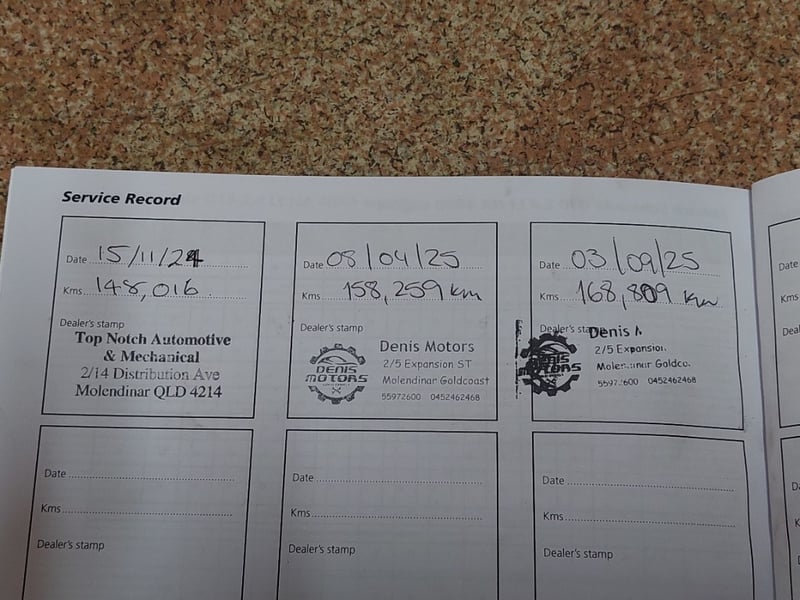 Service Record
Date 15/11/24
Kms 148,016
Dealer's stamp
Top Notch Automotive
& Mechanical
2/14 Distribution Ave
Molendinar QLD 4214
Date 08/04/25
Kms 158,259 km
Dealer's stamp
DENIS
MOTORS
Denis Motors
2/5 Expansion ST
Molendinar Goldcoast
55972600 0452462468
Date 03/09/25
Kms 168,809 km
Dealer's stamp
DENIS
MOTORS
Denis M
2/5 Expansion
Molendinar Goldco
55972600 0452462468
Date
Kms
Dealer's stamp
Date
Kms
Dealer's stamp
Date
Kms
Dealer's stamp
Date
Kms
Deal